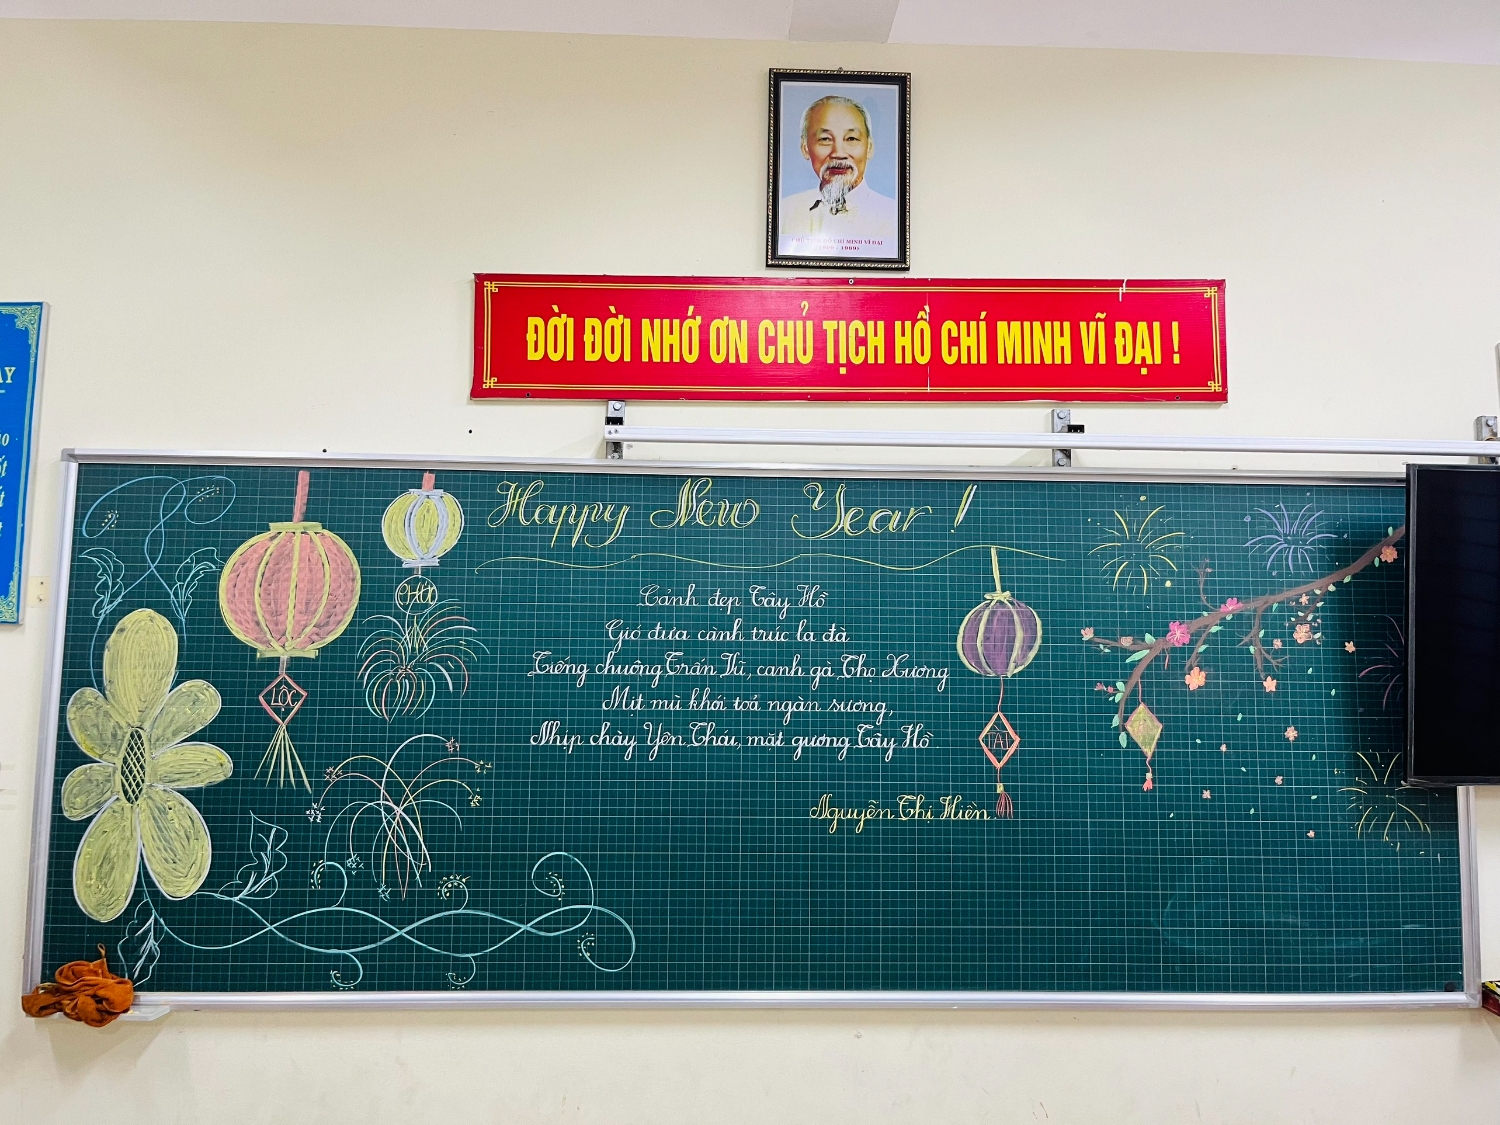 CHỦ TỊCH HỒ CHÍ MINH VĨ ĐẠI
(1890 - 1969)
ĐỜI ĐỜI NHỚ ƠN CHỦ TỊCH HỒ CHÍ MINH VĨ ĐẠI !
AY
Happy New Year !
Cảnh đẹp Tây Hồ
Gió đưa cành trúc la đà
Tiếng chuông Trấn Vũ, canh gà Thọ Xương
Mịt mù khói toả ngàn sương,
Nhịp chày Yên Thái, mặt gương Tây Hồ.
Nguyễn Thị Hiền.
PHÚC
LỘC
TÀI